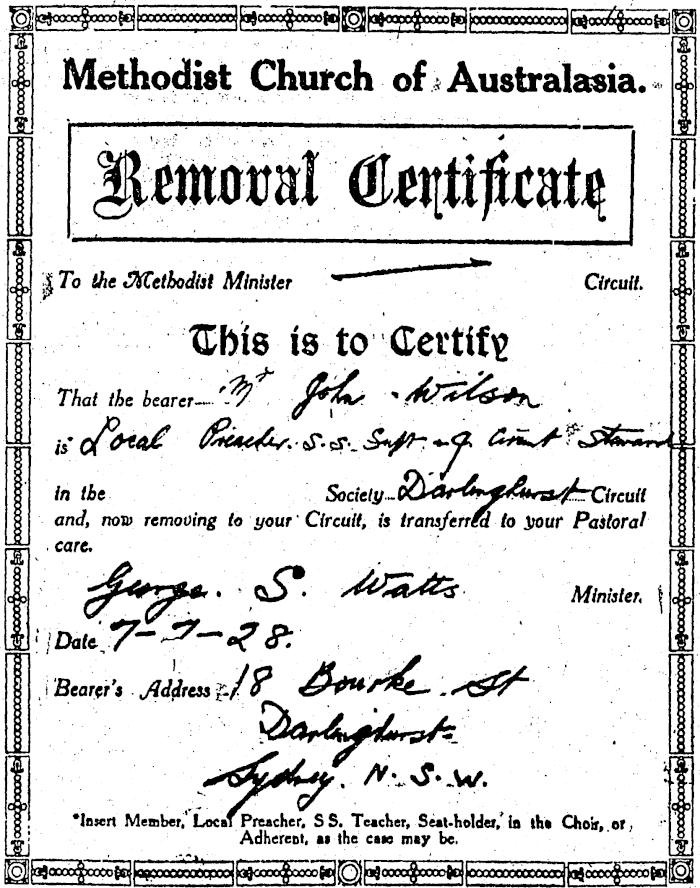 Methodist Church of Australasia.
Removal Certificate
To the Methodist Minister Circuit.
This is to Certify
That the bearer Mr John Wilson
is* Local Preacher. S.S. Supt Circuit Steward
in the Society Darlinghurst Circuit
and, now removing to your Circuit, is transferred to your Pastoral
care.
George. S. Watts Minister.
Date 7-7-28.
Bearer's Address 18 Bourke St
Darlinghurst
Sydney. N.S.W.
*Insert Member, Local Preacher, S S. Teacher, Seat-holder, in the Choir, or
Adherent, as the case may be.